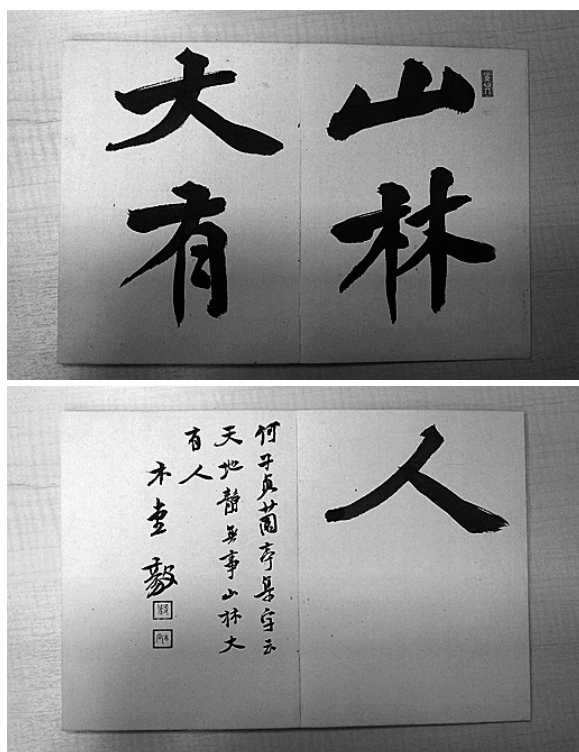 山林
大有
人
何子貞蘭亭集字云
天地静無事山林大
有人
木堂毅